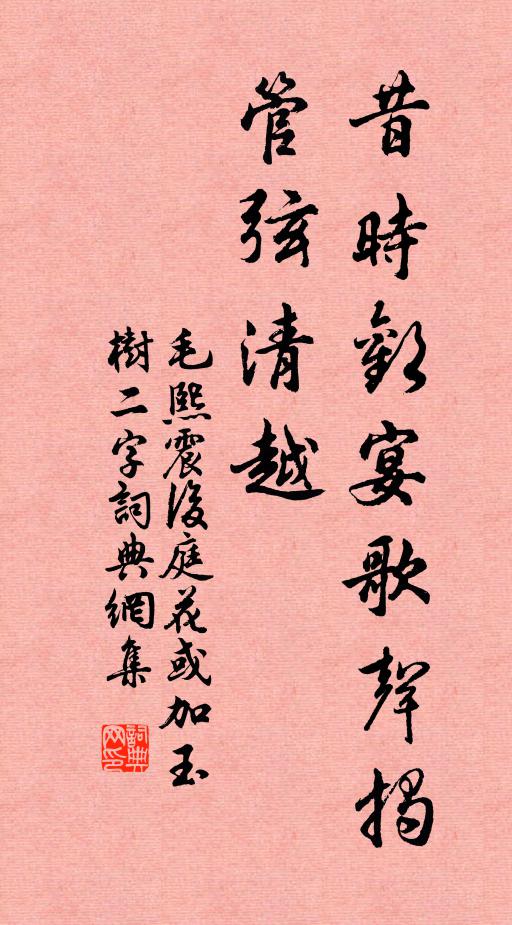 昔時歡宴歌聲揭
管弦清越
毛熙震後庭花或加玉
樹二字詞典網集
詞典
网印